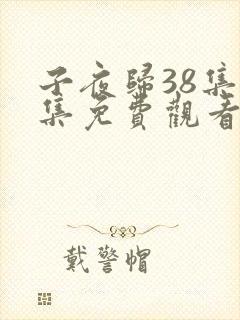 子夜歸38集
集免費觀看
戴警帽